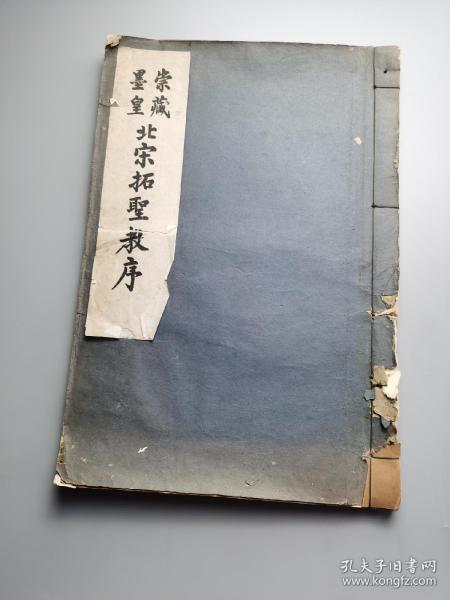 崇藏
墨皇
北宋拓聖教序
孔夫子旧书网
www.kongfz.com